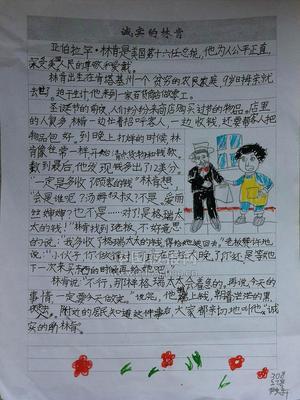 诚实的林肯
亚伯拉罕·林肯是美国第十六任总统，他为人公平正直，
深受美人民的尊敬和爱戴。
林肯出生在肯塔基州一个贫穷的农民家庭，9岁母亲就
去世。迫于生计他来到一家百货店给做零工。
圣诞节的前夜，人们纷纷来商店购买过节的物品。店里
的人真多，林肯一边忙着招呼客人，一边收钱，还要帮客人把
物品包好，到晚上打烊的时候，林
肯像往常一样开始清点货物和钱款，
数到最后，他发现钱多出了12美分。
“一定是多收了顾客的钱”林肯想，
“会是谁呢？汤姆叔叔？不是，爱丽
丝婶婶？也不是……对了！是格瑞太
太的钱！”林肯找到老板，不好意思
的说：“我多收了格瑞太太的钱，得给她送回去。”老板赞许地
说：“小伙子，你做得对，但今天太晚了，你还是等他
下一次来买东西的时候再给她吧。”
林肯说：“不行，那样格瑞太太会着急的，再说，今天的
事情一定要今天做完。”说完，他带上钱，朝着茫茫的黑
夜走去。附近的居民知道这件事后，大家都亲切地叫他“诚
实的林肯。